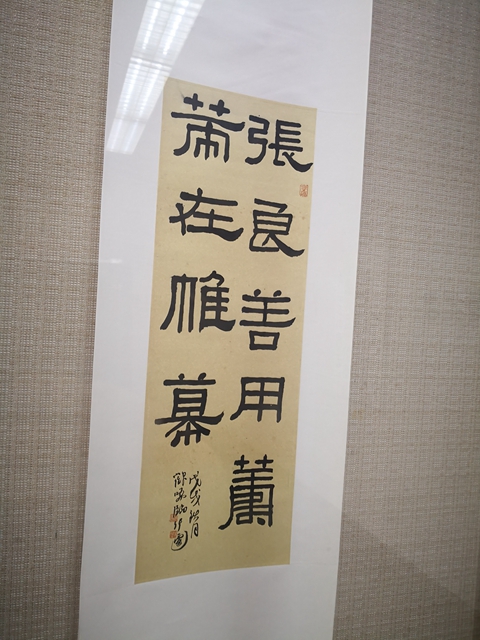 張良善用蕭
芾在帷幕
戊戌 月